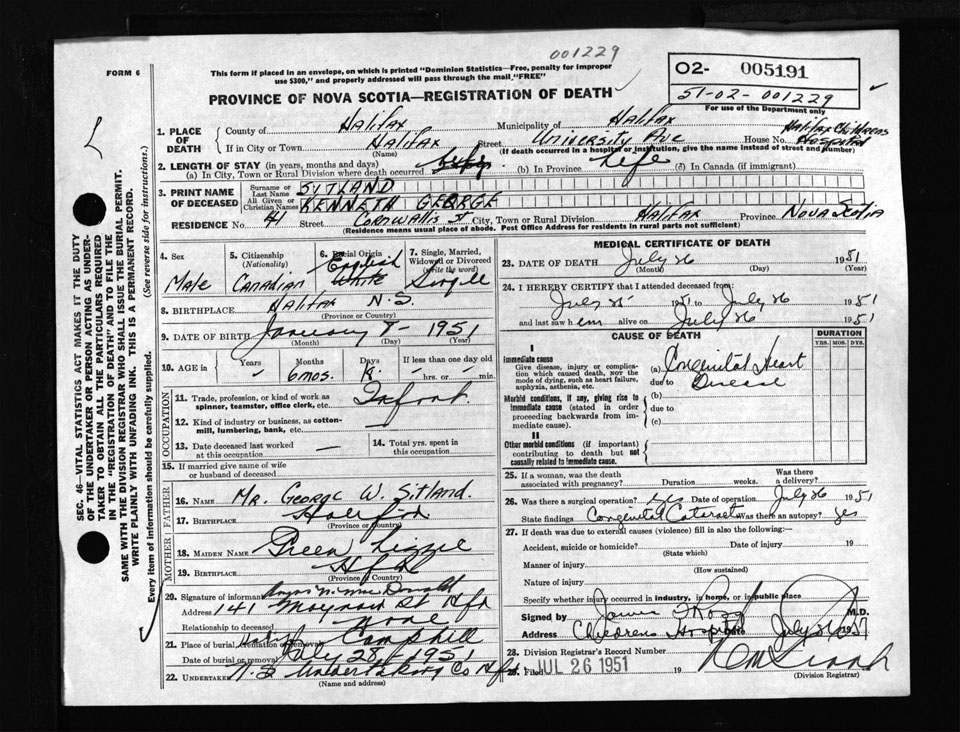 001229
FORM 6
This form if placed in an envelope, on which is printed "Dominion Statistics—Free, penalty for improper
use $300," and properly addressed will pass through the mail "FREE"
O2- 005191
51-02-001229
For use of the Department only
PROVINCE OF NOVA SCOTIA—REGISTRATION OF DEATH
1. PLACE OF DEATH
County of Halifax Municipality of Halifax
If in City or Town Halifax Street University Ave House No. Halifax Childrens Hospital
(Name) (If death occurred in a hospital or institution, give the name instead of street and number)
2. LENGTH OF STAY (in years, months and days)
(a) In City, Town or Rural Division where death occurred (b) In Province Life (d) In Canada (if immigrant)
3. PRINT NAME OF DECEASED
Surname or Last Name SYTLAND
All Given or Christian Names KENNETH GEORGE
RESIDENCE No. 41 Street Cornwallis St City, Town or Rural Division Halifax Province NOVA SCOTIA
(Residence means usual place of abode. Post Office Address for residents in rural parts not sufficient)
4. Sex Male
5. Citizenship (Nationality) Canadian
6. Racial Origin English White
7. Single, Married, Widowed or Divorced (write the word) Single
8. BIRTHPLACE Halifax N.S.
(Province or Country)
9. DATE OF BIRTH January 8 - 1951
(Month) (Day) (Year)
10. AGE in Years Months 6mos. Days If less than one day old hrs. or min.
OCCUPATION
11. Trade, profession, or kind of work as spinner, teamster, office clerk, etc. Infant
12. Kind of industry or business, as cotton-mill, lumbering, bank, etc.
13. Date deceased last worked at this occupation
14. Total yrs. spent in this occupation
15. If married give name of wife or husband of deceased
FATHER
16. NAME Mr. George W. Sitland.
17. BIRTHPLACE
(Province or Country)
MOTHER
18. MAIDEN NAME Green Lizzie
19. BIRTHPLACE
(Province or Country)
20. Signature of informant MacDonald
Address 141 Maynard St Hfx
Relation to deceased none
21. Place of burial, cremation or removal Camphill
Date of burial or removal July 28, 1951
22. UNDERTAKER N.S. Undertaking Co Hfx
(Name and address)
MEDICAL CERTIFICATE OF DEATH
23. DATE OF DEATH July 26 1951
(Month) (Day) (Year)
24. I HEREBY CERTIFY that I attended deceased from:
July 25 1951 to July 26 1951
and last saw h em alive on July 26 1951
CAUSE OF DEATH
DURATION
YRS. MOS. DYS.
I
Immediate cause
Give disease, injury or complication which caused death, NOT the mode of dying, such as heart failure, asphyxia, asthenia, etc.
(a) Congenital Heart
due to Disease
Morbid conditions, if any, giving rise to immediate cause (stated in order proceeding backwards from immediate cause).
(b)
due to
(c)
II
Other morbid conditions (if important) contributing to death but not causally related to immediate cause.
25. If a woman, was the death associated with pregnancy? Duration weeks. Was there a delivery?
26. Was there a surgical operation? yes Date of operation July 26 1951
State findings Congenital Cataract Was there an autopsy? yes
27. If death was due to external causes (violence) fill in also the following:—
Accident, suicide or homicide? Date of injury 19
(State which)
Manner of injury
(How sustained)
Nature of injury
Specify whether injury occurred in industry, in home, or in public place
Signed by M.D.
Address Childrens Hospital July 26 1951
28. Division Registrar's Record Number
29. Filed JUL 26 1951 19
(Division Registrar)
SEC. 46—VITAL STATISTICS ACT MAKES IT THE DUTY
OF THE UNDERTAKER OR PERSON ACTING AS UNDER-
TAKER TO OBTAIN ALL THE PARTICULARS REQUIRED
IN THE "REGISTRATION OF DEATH" AND TO FILE THE
SAME WITH THE DIVISION REGISTRAR WHO SHALL ISSUE THE BURIAL PERMIT.
WRITE PLAINLY WITH UNFADING INK. THIS IS A PERMANENT RECORD.
Every item of information should be carefully supplied. (See reverse side for instructions.)